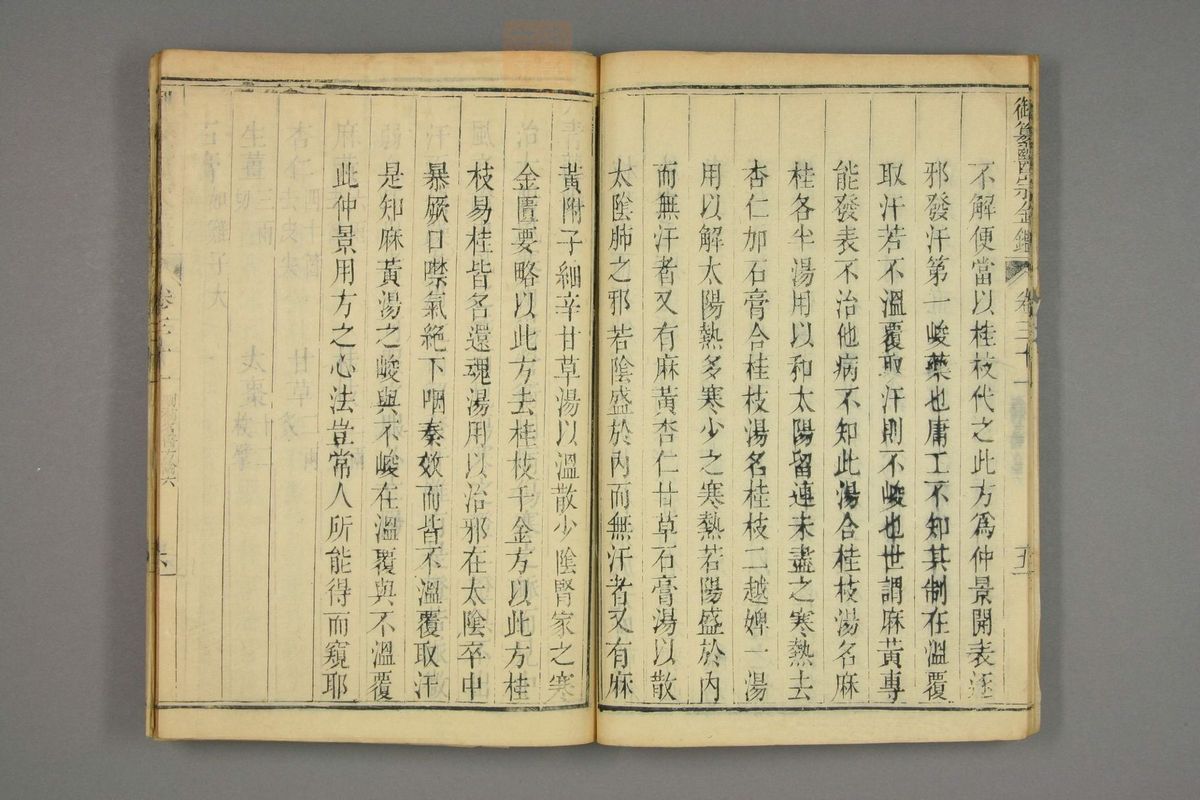 御纂醫宗金鑑
卷三十一
五
不解便當以桂枝代之此方爲仲景開表逐
邪發汗第一峻藥也庸工不知其制在溫覆
取汗若不溫覆取汗則不峻也世謂麻黃專
能發表不治他病不知此湯合桂枝湯名麻
桂各半湯用以和太陽留連未盡之寒熱去
杏仁加石膏合桂枝湯名桂枝二越婢一湯
用以解太陽熱多寒少之寒熱若陽盛於內
而無汗者又有麻黃杏仁甘草石膏湯以散
太陰肺之邪若陰盛於內而無汗者又有麻
黃附子細辛甘草湯以溫散少陰腎家之寒
金匱要略以此方去桂枝千金方以此方桂
枝易桂皆名還魂湯用以治邪在太陰卒中
暴厥口噤氣絕下咽奏效而皆不溫覆取汗
是知麻黃湯之峻與不峻在溫覆與不溫覆
此仲景用方之心法豈常人所能得而窺耶
卷三十一
六